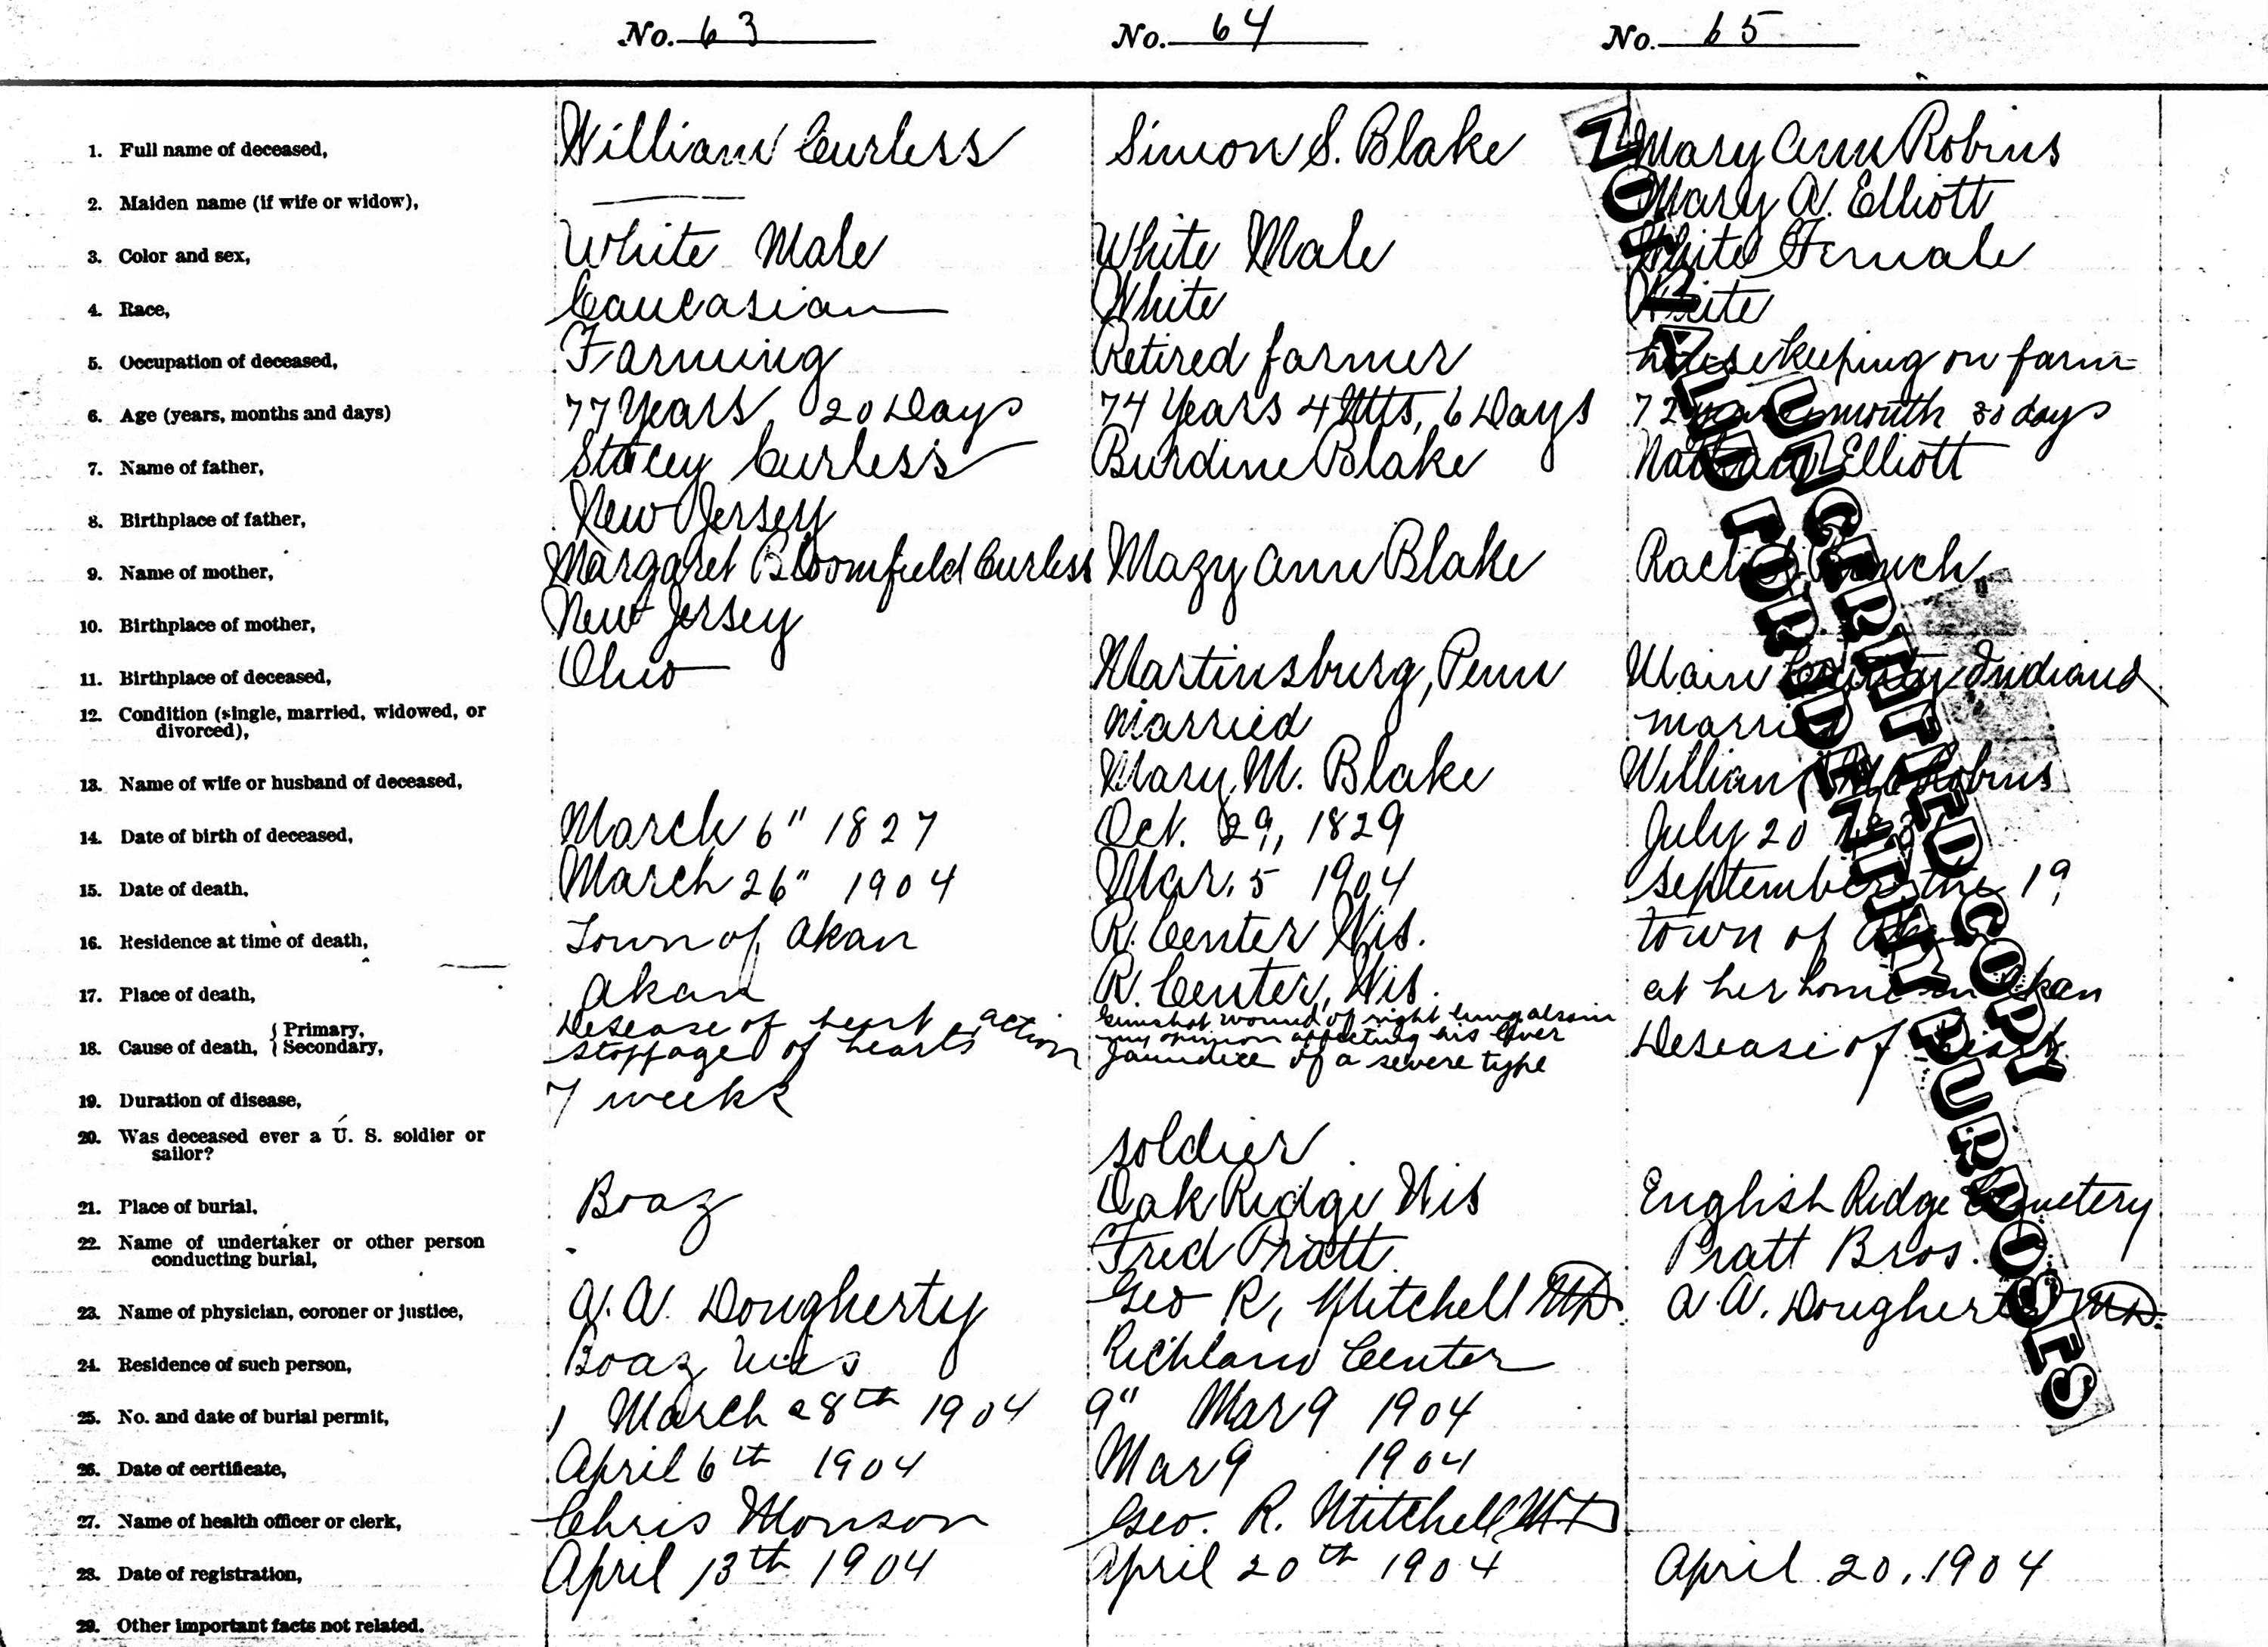 No. 63 No. 64 No. 65
1. Full name of deceased, William Curless Simon S. Blake Mary Ann Robins
2. Maiden name (if wife or widow), Mary A. Elliott
3. Color and sex, White Male White Male White Female
4. Race, Caucasian White White
5. Occupation of deceased, Farming Retired farmer housekeeping on farm
6. Age (years, months and days) 77 Years 20 Days 74 Years 4 Mts, 6 Days 72 month days
7. Name of father, Stacey Curless Burdine Blake Elliott
8. Birthplace of father, New Jersey
9. Name of mother, Margaret Bloomfield Curless Mazy Ann Blake
10. Birthplace of mother, New Jersey
11. Birthplace of deceased, Ohio Martinsburg, Penn County Indiana
12. Condition (single, married, widowed, or
divorced), Married married
13. Name of wife or husband of deceased, Mary M. Blake William Robins
14. Date of birth of deceased, March 6" 1827 Oct. 29, 1829 July 20
15. Date of death, March 26" 1904 Mar. 5 1904 September the 19
16. Residence at time of death, Town of Akan R. Center Wis. town of
17. Place of death, Akan R. Center, Wis. at her home in Akan
18. Cause of death, { Primary, Secondary, Desease of heart stoppage of hearts action Gunshot wound of right lung also in my opinion affecting his liver Jaundice of a severe type Desease of heart
19. Duration of disease, 7 weeks
20. Was deceased ever a U. S. soldier or
sailor? soldier
21. Place of burial, Boaz Oak Ridge Wis English Ridge Cemetery
22. Name of undertaker or other person
conducting burial, Fred Pratt. Pratt Bros.
23. Name of physician, coroner or justice, A. A. Dougherty Geo R, Mitchell MD. A. A. Dougherty MD.
24. Residence of such person, Boaz Wis Richland Center
25. No. and date of burial permit, 1 March 28th 1904 9" Mar 9 1904
26. Date of certificate, April 6th 1904 Mar 9 1904
27. Name of health officer or clerk, Chris Monson Geo. R. Mitchell M.D
28. Date of registration, April 13th 1904 April 20th 1904 April 20, 1904
29. Other important facts not related.
UNCERTIFIED COPY
NOT VALID FOR IDENTITY PURPOSES